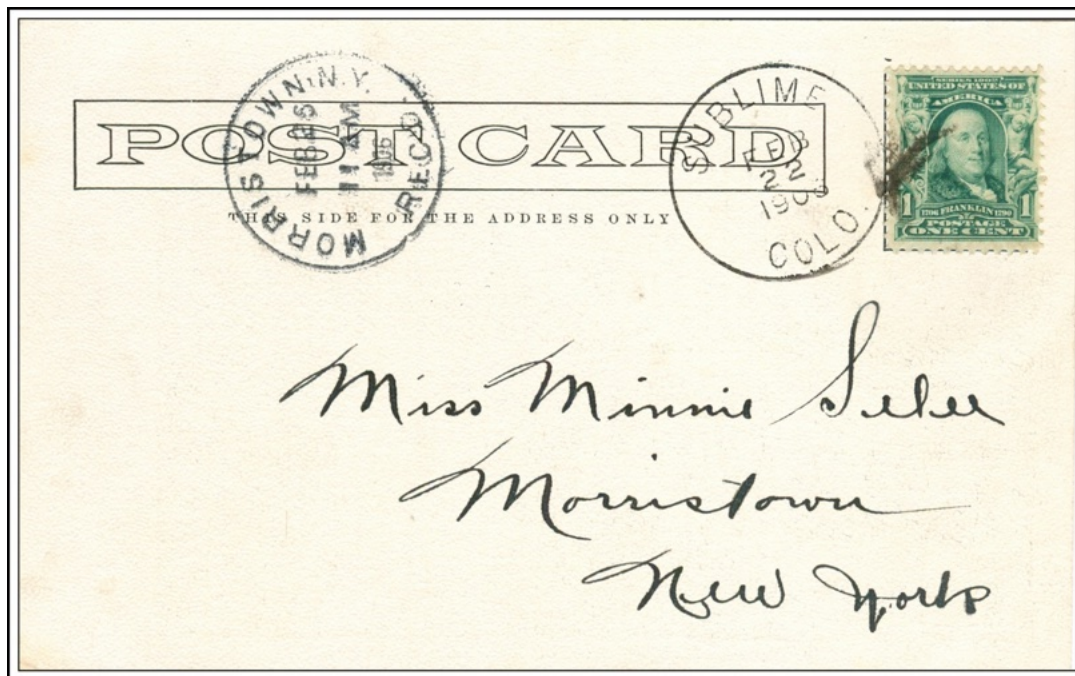 POST CARD
THIS SIDE FOR THE ADDRESS ONLY
MORRISTOWN.N.Y.
FEB 26
11 AM
1906
REC'D.
SUBLIME
FEB
22
1906
COLO.
SERIES 1902
UNITED STATES OF
AMERICA
1 1706 FRANKLIN 1790 1
POSTAGE
ONE CENT
Miss Minnie
Morristown
New York